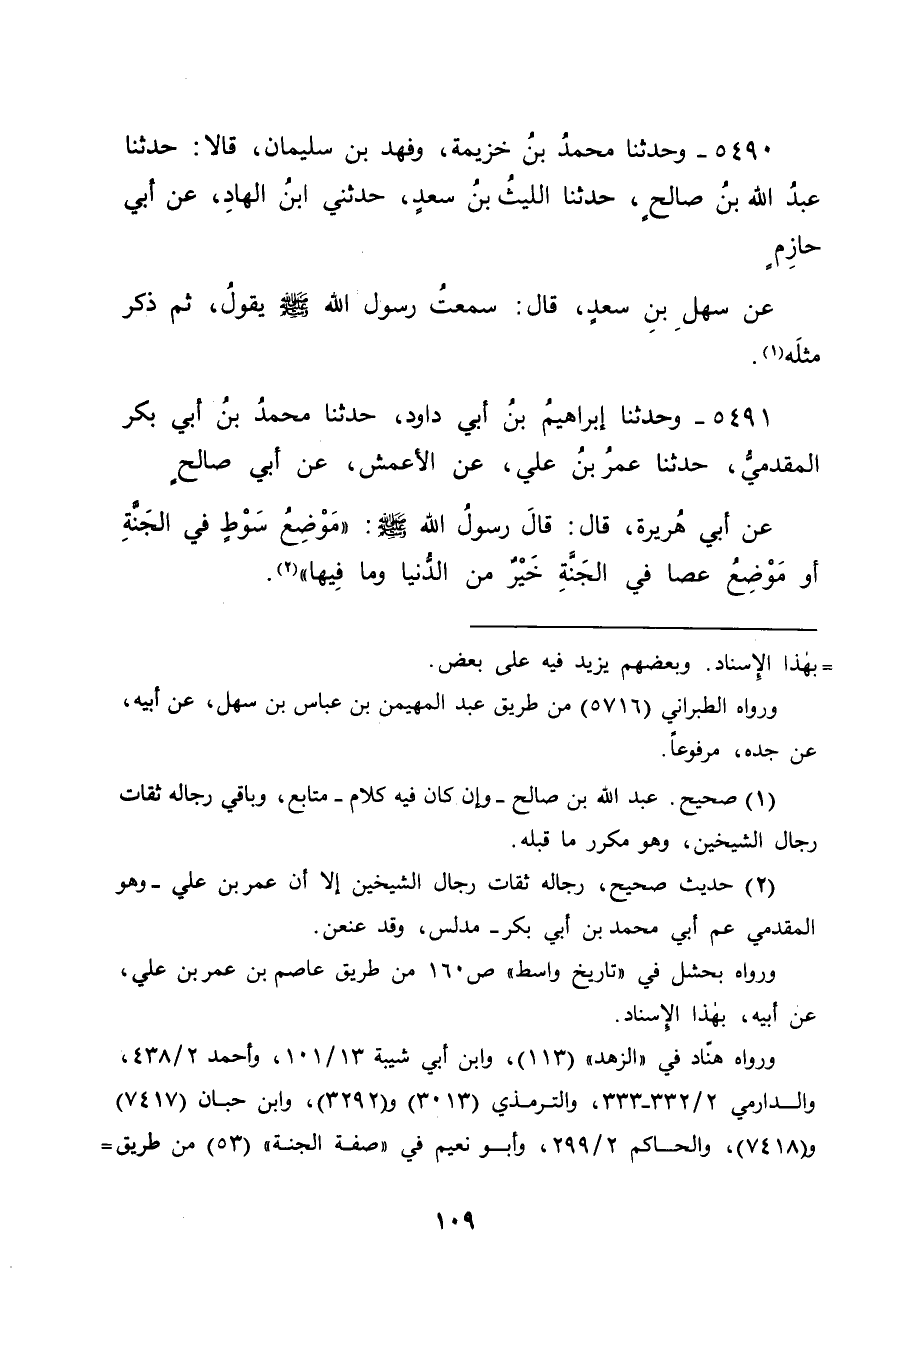 ٥٤٩٠ ـ وحدثنا محمدُ بنُ خزيمة، وفهد بن سليمان، قالا: حدثنا
عبدُ الله بنُ صالحٍ، حدثنا الليثُ بنُ سعدٍ، حدثني ابنُ الهادِ، عن أبي
حازِمٍ
عن سهلِ بنِ سعدٍ، قال: سمعتُ رسول الله ﷺ يقولُ، ثم ذكر
مثلَه(١).
٥٤٩١ ـ وحدثنا إبراهيمُ بنُ أبي داود، حدثنا محمدُ بنُ أبي بكر
المقدميُّ، حدثنا عمرُ بنُ علي، عن الأعمش، عن أبي صالحٍ
عن أبي هُريرة، قال: قالَ رسولُ الله ﷺ: «مَوْضِعُ سَوْطٍ في الجَنَّةِ
أو مَوْضِعُ عصا في الجَنَّةِ خَيْرٌ من الدُّنيا وما فِيها»(٢).
= بهٰذا الإسناد. وبعضهم يزيد فيه على بعض.
ورواه الطبراني (٥٧١٦) من طريق عبد المهيمن بن عباس بن سهل، عن أبيه،
عن جده، مرفوعاً.
(١) صحيح. عبد الله بن صالح ـ وإن كان فيه كلام ـ متابع، وباقي رجاله ثقات
رجال الشيخين، وهو مكرر ما قبله.
(٢) حديث صحيح، رجاله ثقات رجال الشيخين إلا أن عمر بن علي ـ وهو
المقدمي عم أبي محمد بن أبي بكر ـ مدلس، وقد عنعن.
ورواه بحشل في «تاريخ واسط» ص١٦٠ من طريق عاصم بن عمر بن علي،
عن أبيه، بهٰذا الإسناد.
ورواه هنّاد في «الزهد» (١١٣)، وابن أبي شيبة ١٠١/١٣، وأحمد ٤٣٨/٢،
والدارمي ٣٣٢/٢-٣٣٣، والترمذي (٣٠١٣) و(٣٢٩٢)، وابن حبان (٧٤١٧)
و(٧٤١٨)، والحاكم ٢٩٩/٢، وأبو نعيم في «صفة الجنة» (٥٣) من طريق=
١٠٩